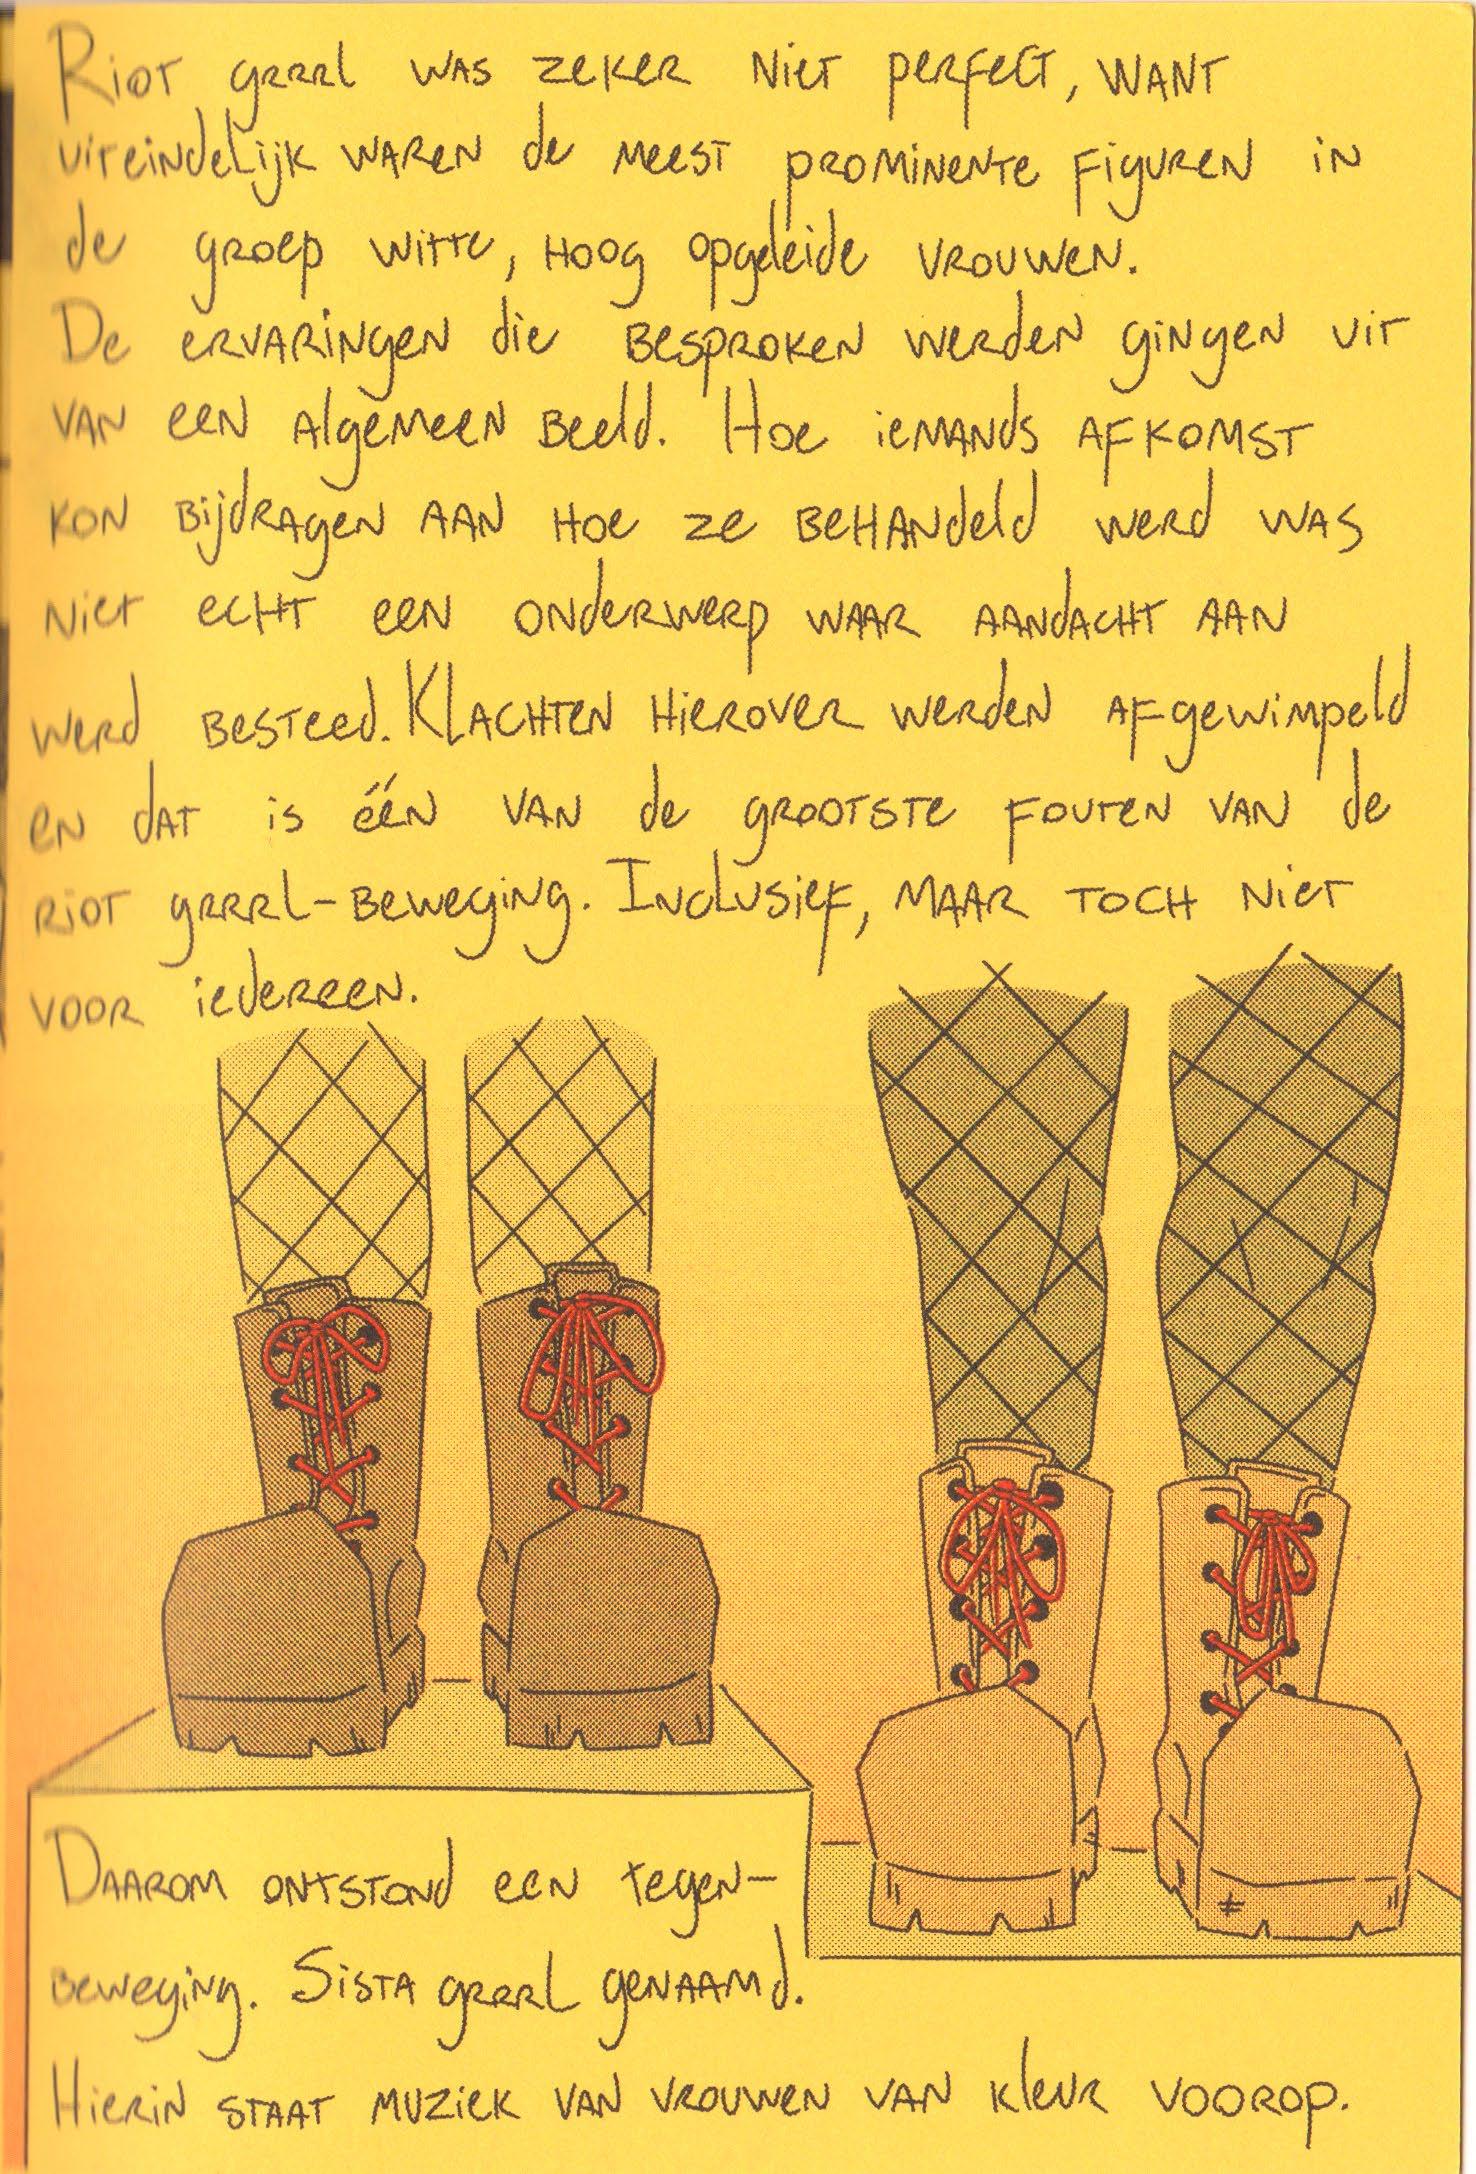 Riot grrrl was zeker niet perfect, want
uiteindelijk waren de meest prominente figuren in
de groep witte, hoog opgeleide vrouwen.
De ervaringen die besproken werden gingen uit
van een algemeen beeld. Hoe iemands afkomst
kon bijdragen aan hoe ze behandeld werd was
niet echt een onderwerp waar aandacht aan
werd besteed. Klachten hierover werden afgewimpeld
en dat is één van de grootste fouten van de
riot grrrl-beweging. Inclusief, maar toch niet
voor iedereen.
Daarom ontstond een tegen-
beweging. Sista grrrl genaamd.
Hierin staat muziek van vrouwen van kleur voorop.